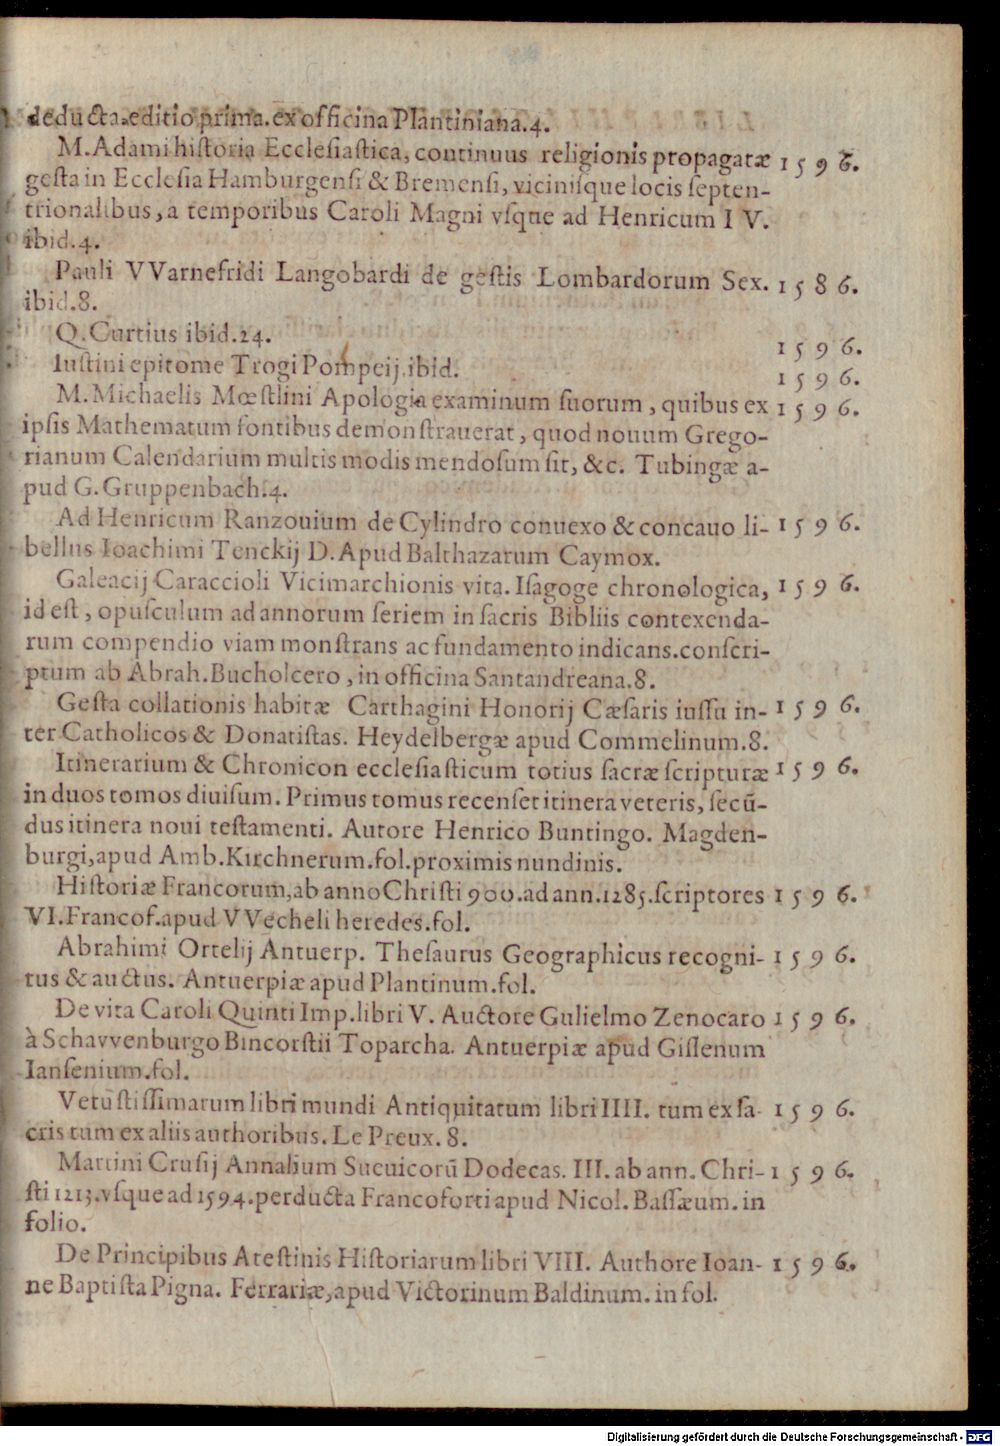 deducta.editio prima.ex officina Plantiniana.4.
M.Adami historia Ecclesiastica, continuus religionis propagatæ 1596.
gesta in Ecclesia Hamburgensi & Bremensi, vicinisque locis septen-
trionalibus, a temporibus Caroli Magni vsque ad Henricum IV.
ibid.4.
Pauli VVarnefridi Langobardi de gestis Lombardorum Sex. 1586.
ibid.8.
Q.Curtius ibid.24. 1596.
Iustini epitome Trogi Pompeij.ibid. 1596.
M.Michaelis Mœstlini Apologia examinum suorum, quibus ex 1596.
ipsis Mathematum fontibus demonstrauerat, quod nouum Grego-
rianum Calendarium multis modis mendosum sit, &c. Tubingæ a-
pud G.Gruppenbach.4.
Ad Henricum Ranzouium de Cylindro conuexo & concauo li- 1596.
bellus Ioachimi Tenckij D.Apud Balthazarum Caymox.
Galeacij Caraccioli Vicimarchionis vita. Isagoge chronologica, 1596.
id est, opusculum ad annorum seriem in sacris Bibliis contexenda-
rum compendio viam monstrans ac fundamento indicans.conscri-
ptum ab Abrah.Bucholcero, in officina Santandreana.8.
Gesta collationis habitæ Carthagini Honorij Cæsaris iussu in- 1596.
ter Catholicos & Donatistas. Heydelbergæ apud Commelinum.8.
Itinerarium & Chronicon ecclesiasticum totius sacræ scripturæ 1596.
in duos tomos diuisum. Primus tomus recenset itinera veteris, secũ-
dus itinera noui testamenti. Autore Henrico Buntingo. Magden-
burgi, apud Amb.Kirchnerum.fol.proximis nundinis.
Historiæ Francorum, ab anno Christi 900.ad ann.1285.scriptores 1596.
VI.Francof.apud VVecheli heredes.fol.
Abrahimi Ortelij Antuerp. Thesaurus Geographicus recogni- 1596.
tus & auctus. Antuerpiæ apud Plantinum.fol.
De vita Caroli Quinti Imp.libri V. Auctore Gulielmo Zenocaro 1596.
à Schavvenburgo Bincorstii Toparcha. Antuerpiæ apud Gislenum
Iansenium.fol.
Vetustissimarum libri mundi Antiquitatum libri IIII. tum ex sa- 1596.
cris tum ex aliis authoribus. Le Preux. 8.
Martini Crusij Annalium Sueuicorũ Dodecas. III. ab ann. Chri- 1596.
sti 1213.vsque ad 1594.perducta Francoforti apud Nicol. Bassæum. in
folio.
De Principibus Atestinis Historiarum libri VIII. Authore Ioan- 1596.
ne Baptista Pigna. Ferrariæ, apud Victorinum Baldinum. in fol.
Digitalisierung gefördert durch die Deutsche Forschungsgemeinschaft - DFG